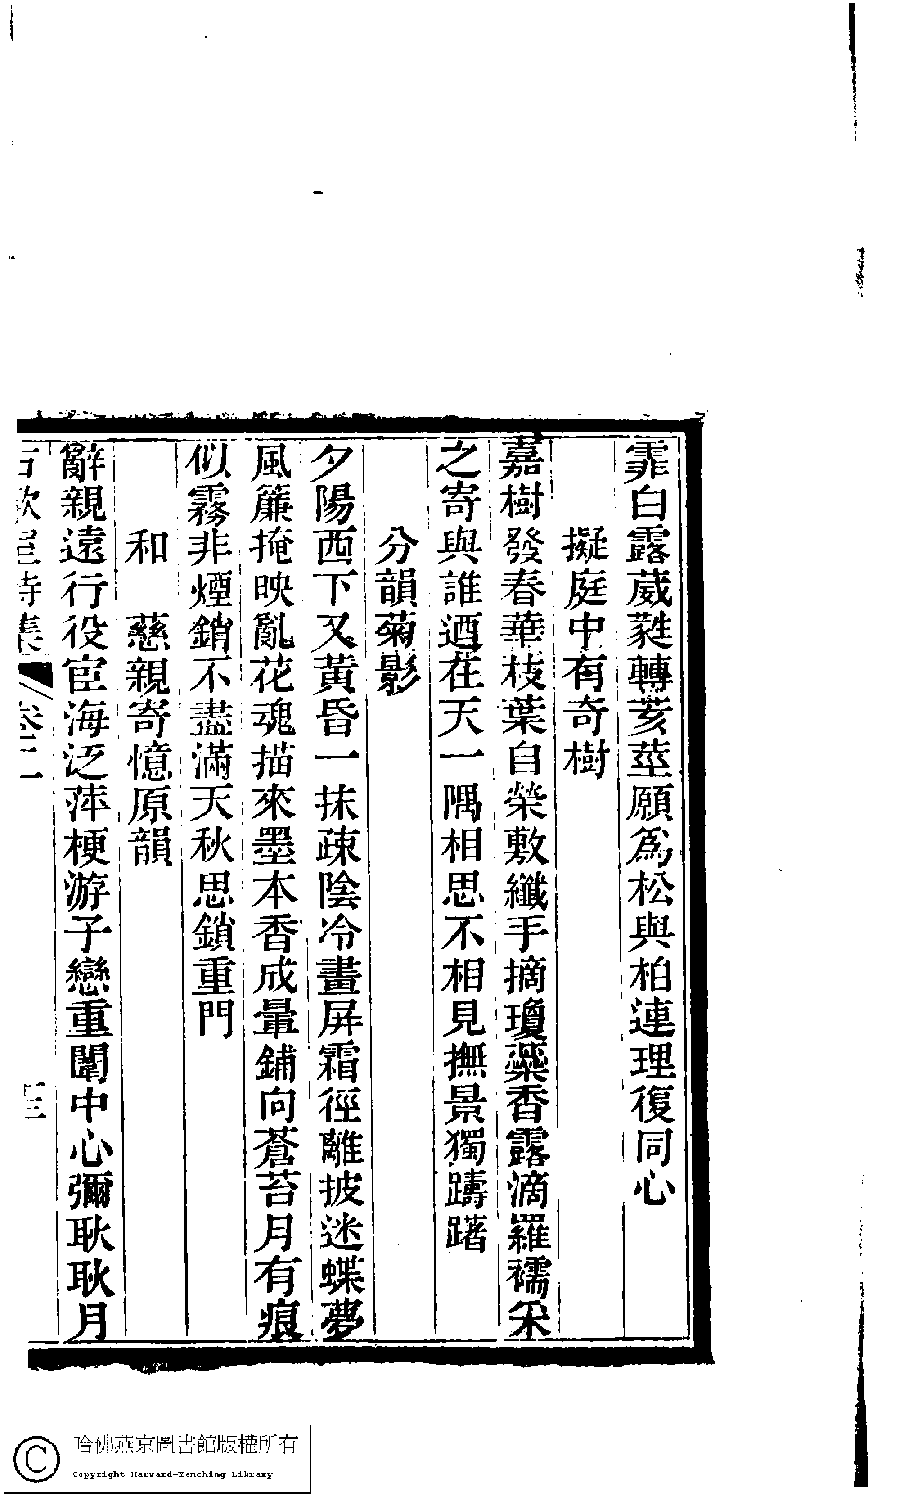 霏白露葳蕤轉荄莖願爲松與柏連理復同心
擬庭中有奇樹
嘉樹發春華枝葉自榮敷纖手摘瓊蘂香露滴羅襦采
之寄與誰迺在天一隅相思不相見撫景獨躊躇
分韻菊影
夕陽西下又黃昏一抹疎陰冷畫屏霜徑離披迷蝶夢
風簾掩映亂花魂描來墨本香成暈鋪向蒼苔月有痕
似霧非煙銷不盡滿天秋思鎖重門
和　慈親寄憶原韻
辭親遠行役宦海泛萍梗游子戀重闈中心彌耿耿月
詩集　卷二　十三
哈佛燕京圖書館版權所有
Copyright Harvard-Yenching Library